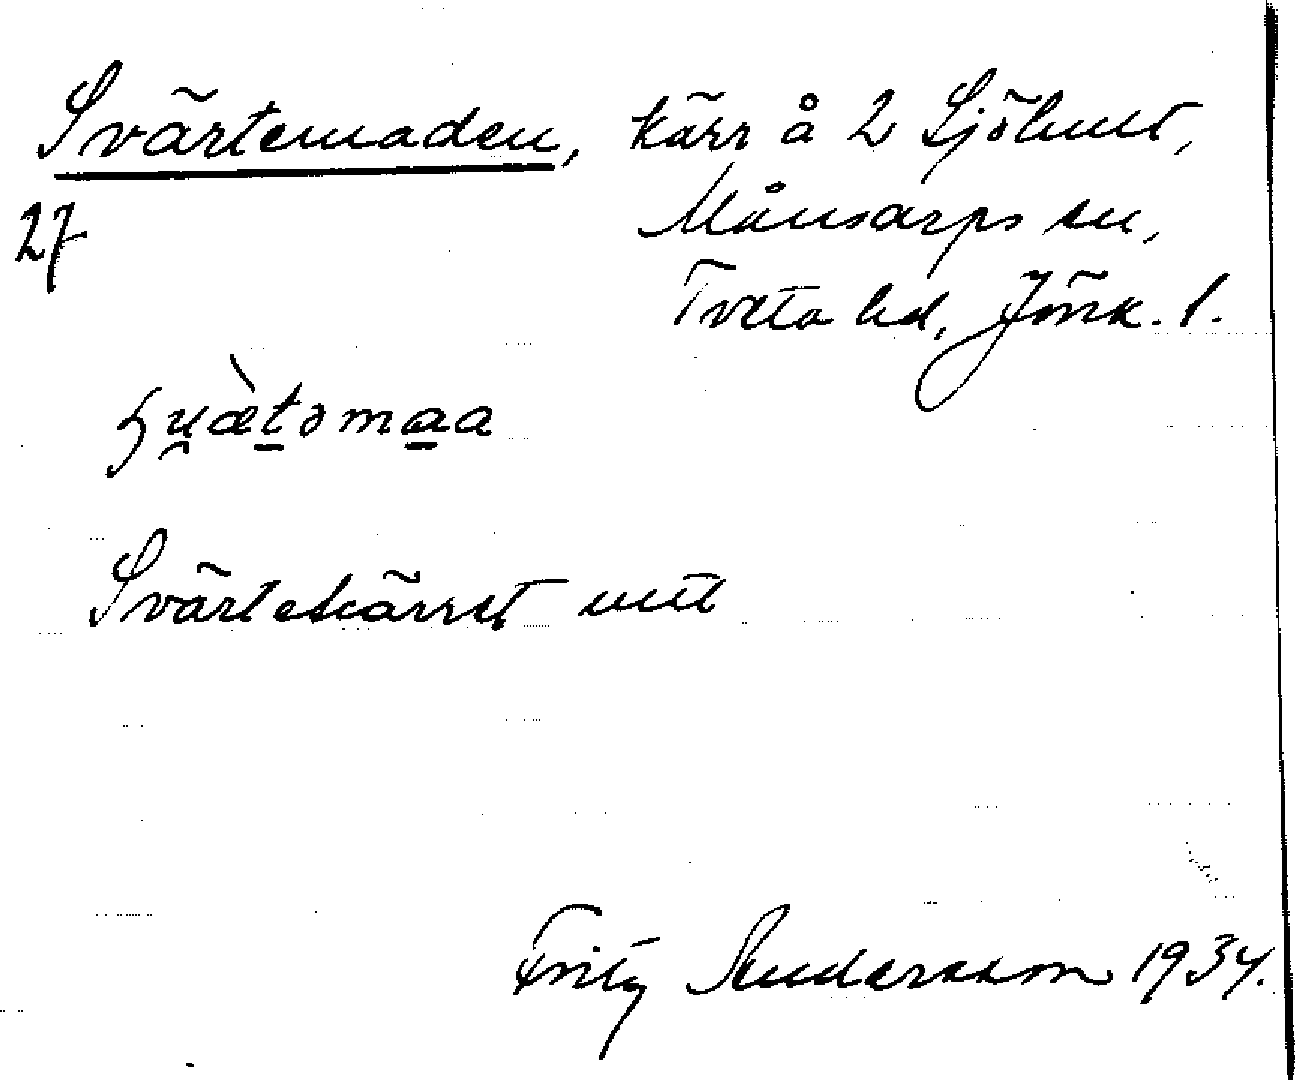 Svärtemaden, kärr å 2 Sjölunt,
27
Månsarps sn,
Tveta hd, Jönk. l.
su̯æ̀t̠əma̠a
Svärtekärret uut
Fritz Andersson 1934.